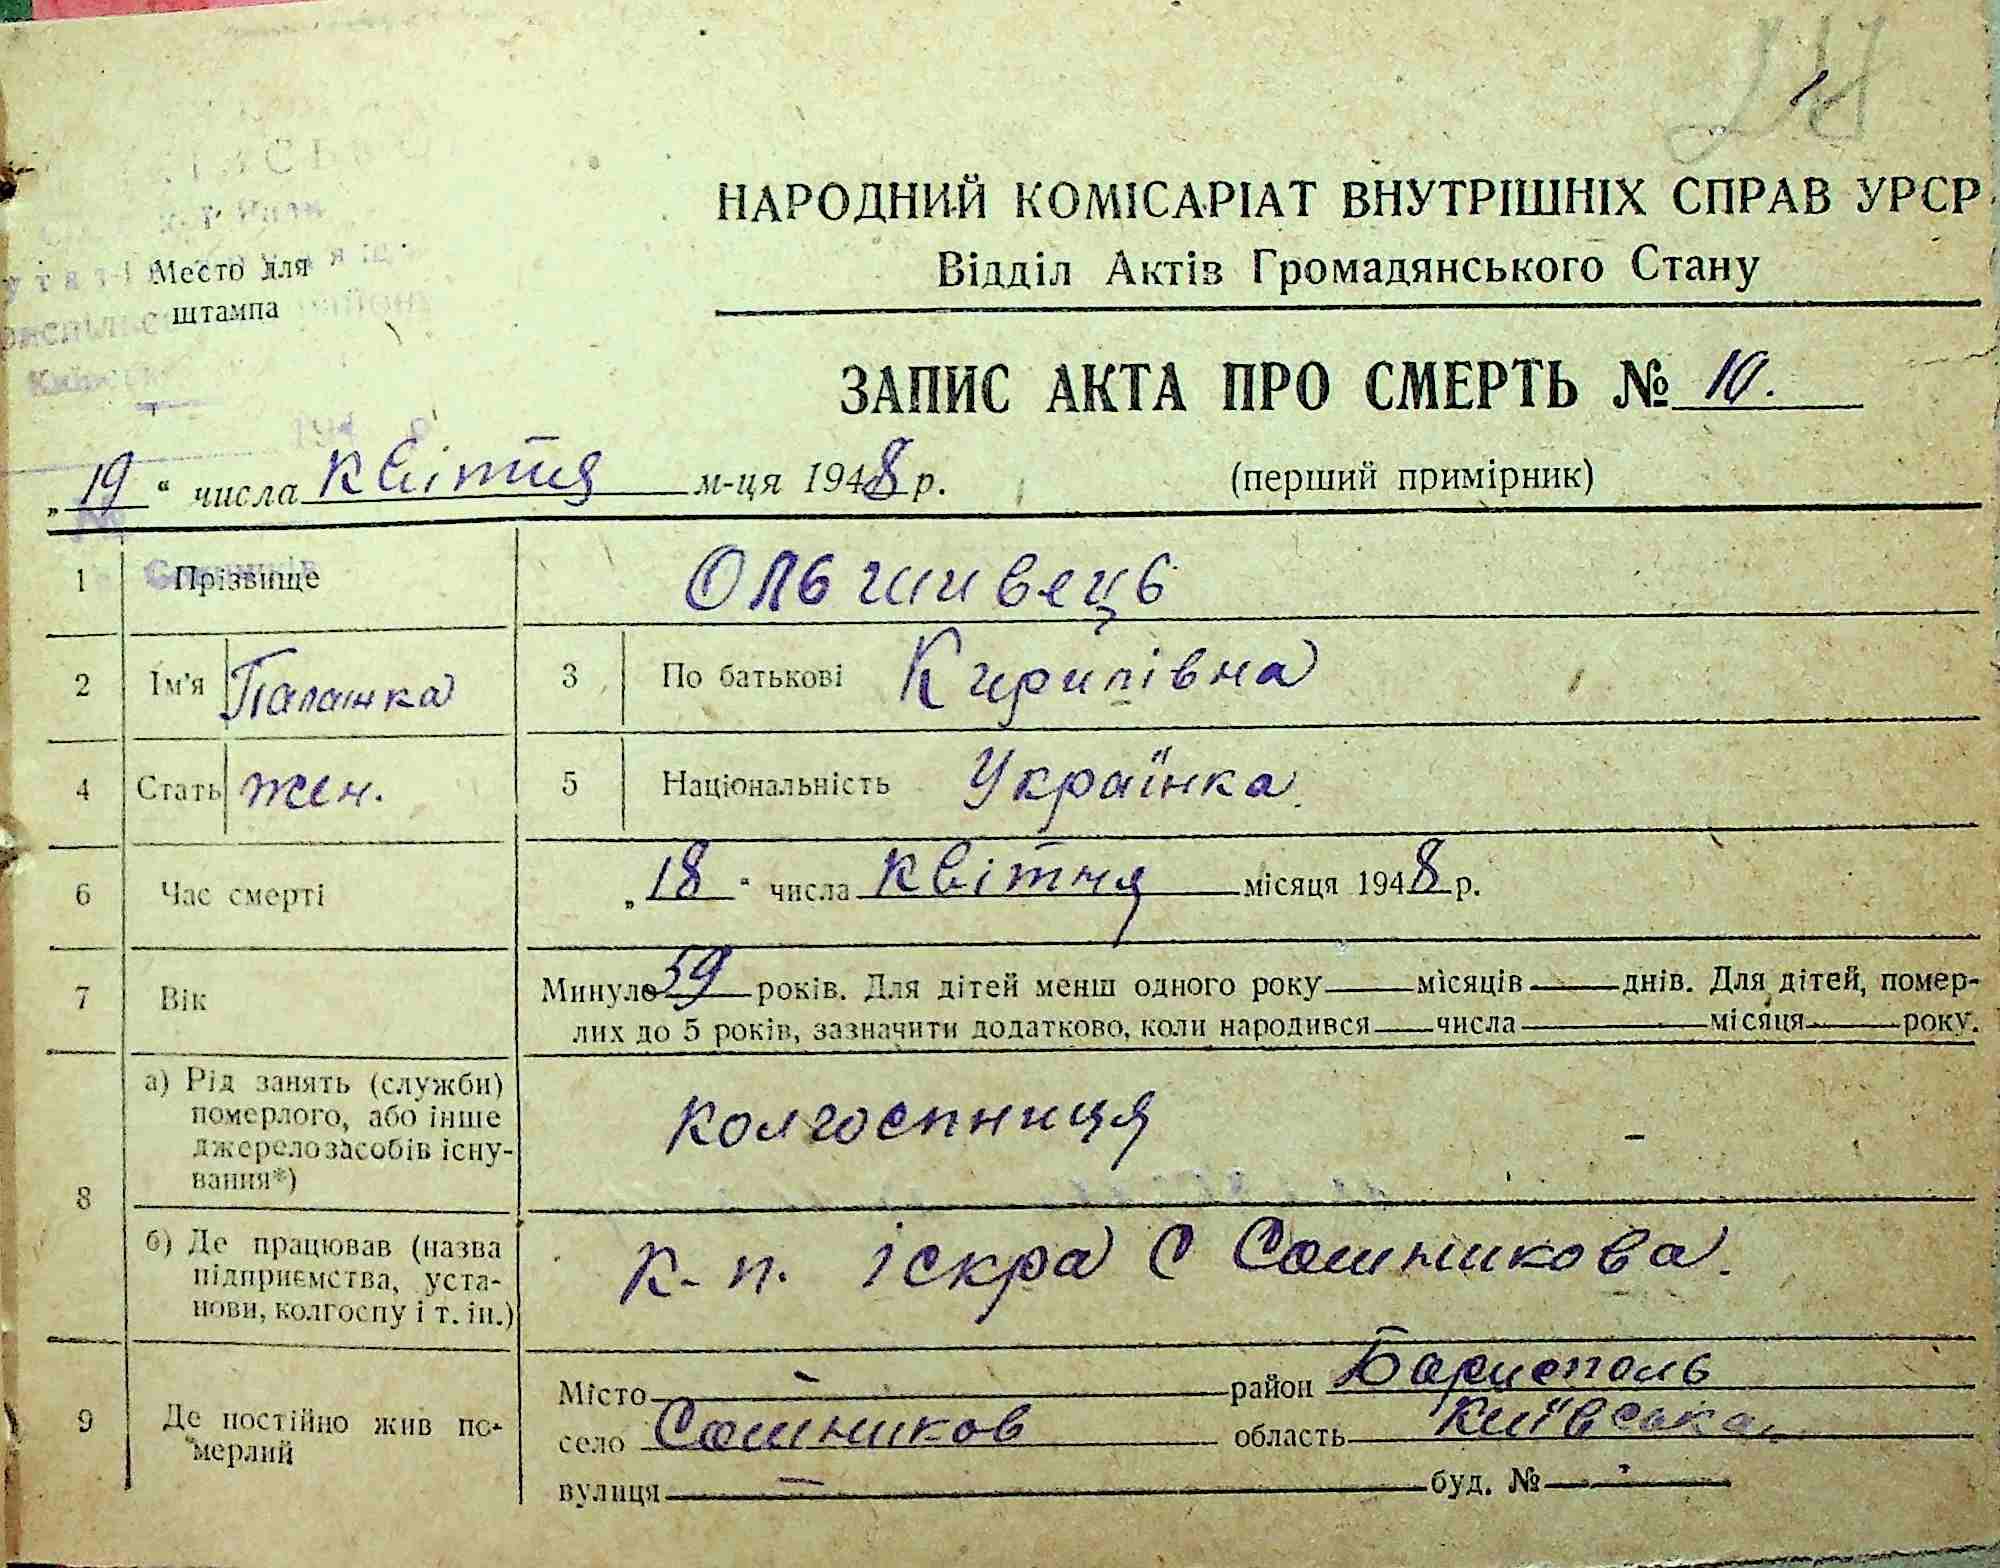 НАРОДНИЙ КОМІСАРІАТ ВНУТРІШНІХ СПРАВ УРСР
Відділ Актів Громадянського Стану
Место для
штампа
ЗАПИС АКТА ПРО СМЕРТЬ № 10.
„19“ числа квітня м-ця 1948 р.
(перший примірник)
1 Прізвище Ольшивець
2 Ім'я Палашка 3 По батькові Кирилівна
4 Стать жен. 5 Національність Українка.
6 Час смерті „18“ числа квітня місяця 1948 р.
7 Вік Минуло 59 років. Для дітей менш одного року місяців днів. Для дітей, помер-
лих до 5 років, зазначити додатково, коли народився числа місяця року.
8 а) Рід занять (служби)
померлого, або інше
джерело засобів існу-
вання*)
колгоспниця -
б) Де працював (назва
підприємства, уста-
нови, колгоспу і т. ін.)
к-п. іскра С Сошникова.
9 Де постійно жив по-
мерлий
Місто - район Бориспол​ь
село Сошников область Київська
вулиця — буд. № -